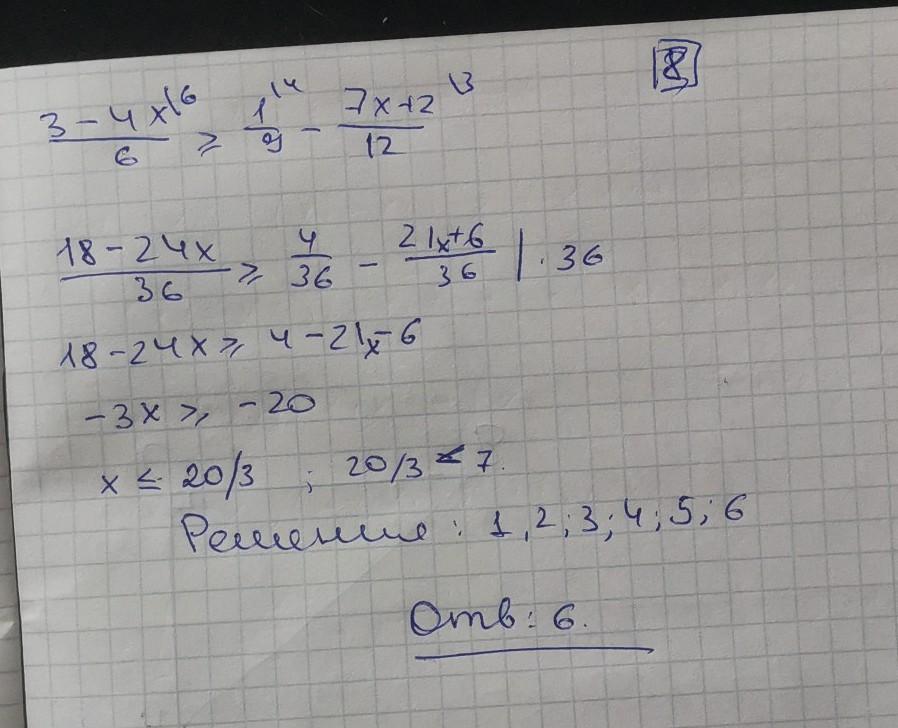 8
3 - 4x\6 / 6 ⩾ 1\4 / 9 - 7x+2\3 / 12
18 - 24x / 36 ⩾ 4 / 36 - 21x+6 / 36 | · 36
18 - 24x ⩾ 4 - 21x - 6
-3x ⩾ -20
x ≤ 20/3 ; 20/3 < 7.
Решение : 1,2;3;4;5;6
Отв: 6.